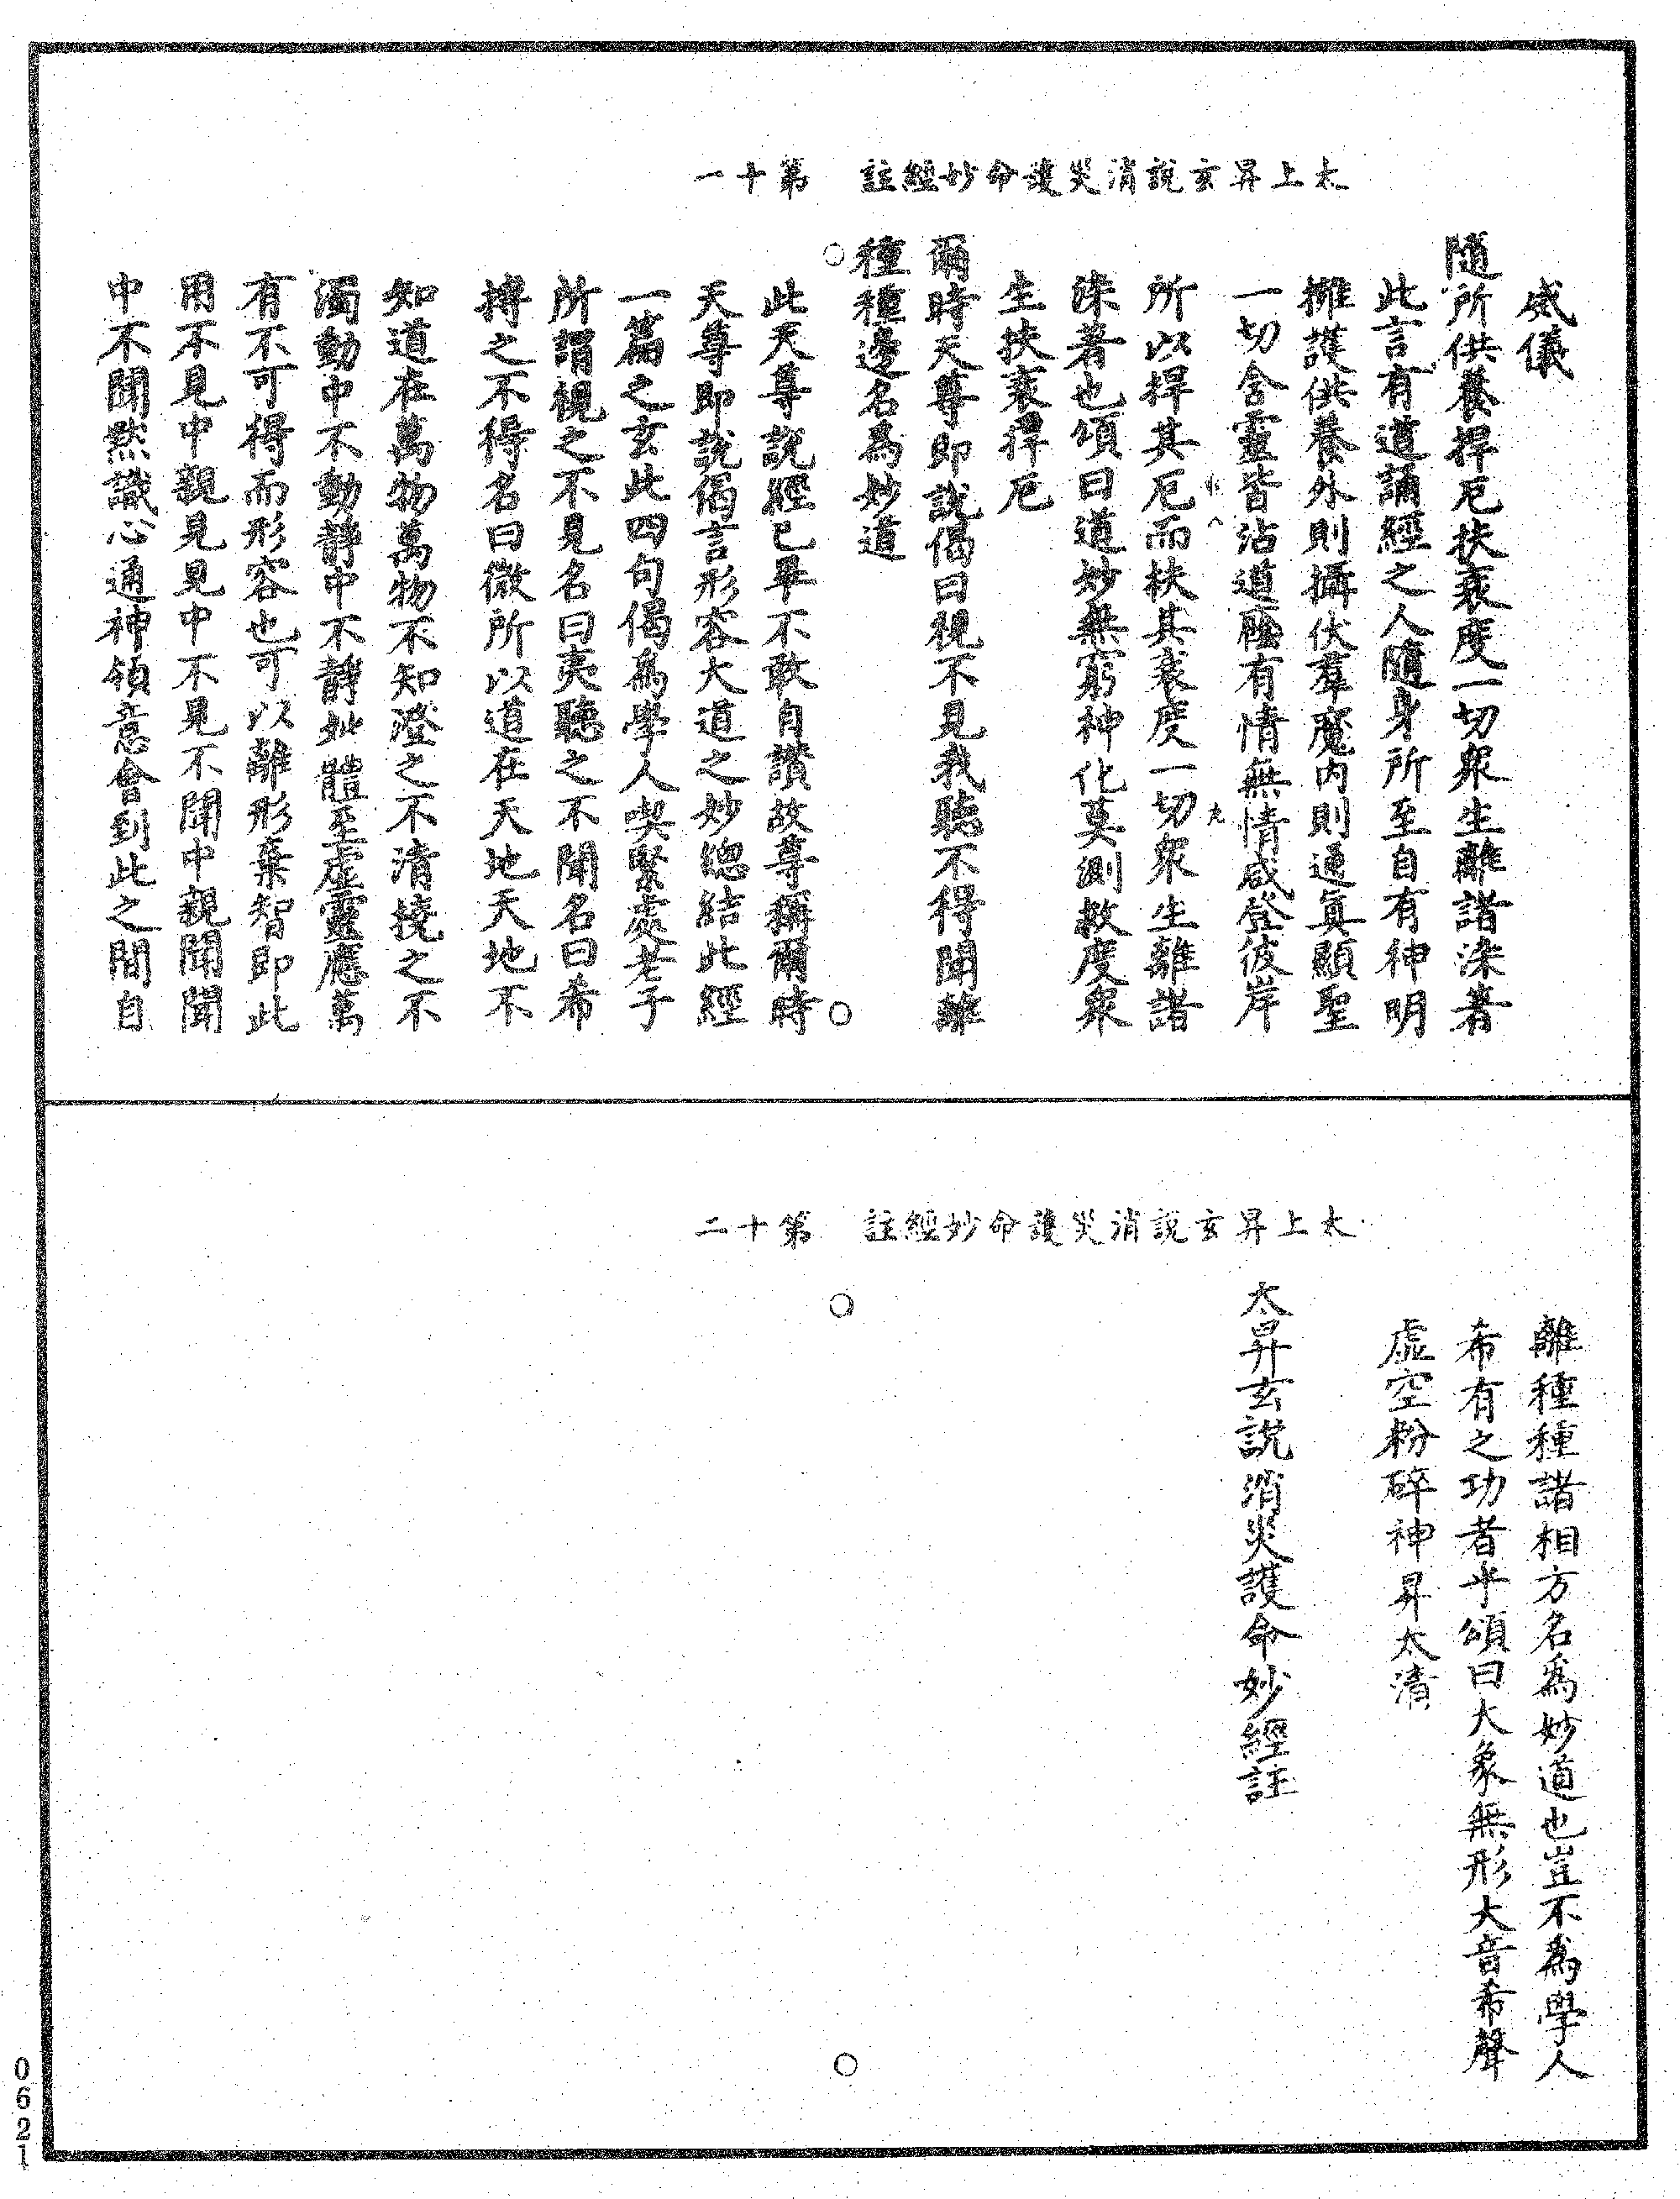 太上昇玄說消災護命妙經註　第十一
威儀
隨所供養捍厄扶衰度一切眾生離諸染著
此言有道誦經之人隨身所至自有神明
擁護供養外則攝伏羣魔內則通眞顯聖
一切含靈皆沾道廕有情無情咸登彼岸
所以捍其厄而扶其衰度一切眾生離諸
染著也頌曰道妙無窮神化莫測救度眾
生扶衰捍厄
爾時天尊即說偈曰視不見我聽不得聞離
種種邊名爲妙道
此天尊說經已畢不敢自讚故尊稱爾時
天尊即說偈言形容大道之妙總結此經
一篇之玄此四句偈爲學人喫緊處老子
所謂視之不見名曰夷聽之不聞名曰希
搏之不得名曰微所以道在天地天地不
知道在萬物萬物不知澄之不清撓之不
濁動中不動靜中不靜此體至虛靈應萬
有不可得而形容也可以離形棄智即此
用不見中親見見中不見不聞中親聞聞
中不聞默識心通神領意會到此之間自
太上昇玄說消災護命妙經註　第十二
離種種諸相方名爲妙道也豈不爲學人
希有之功者乎頌曰大象無形大音希聲
虛空粉碎神昇太清
太昇玄說消災護命妙經註
0621